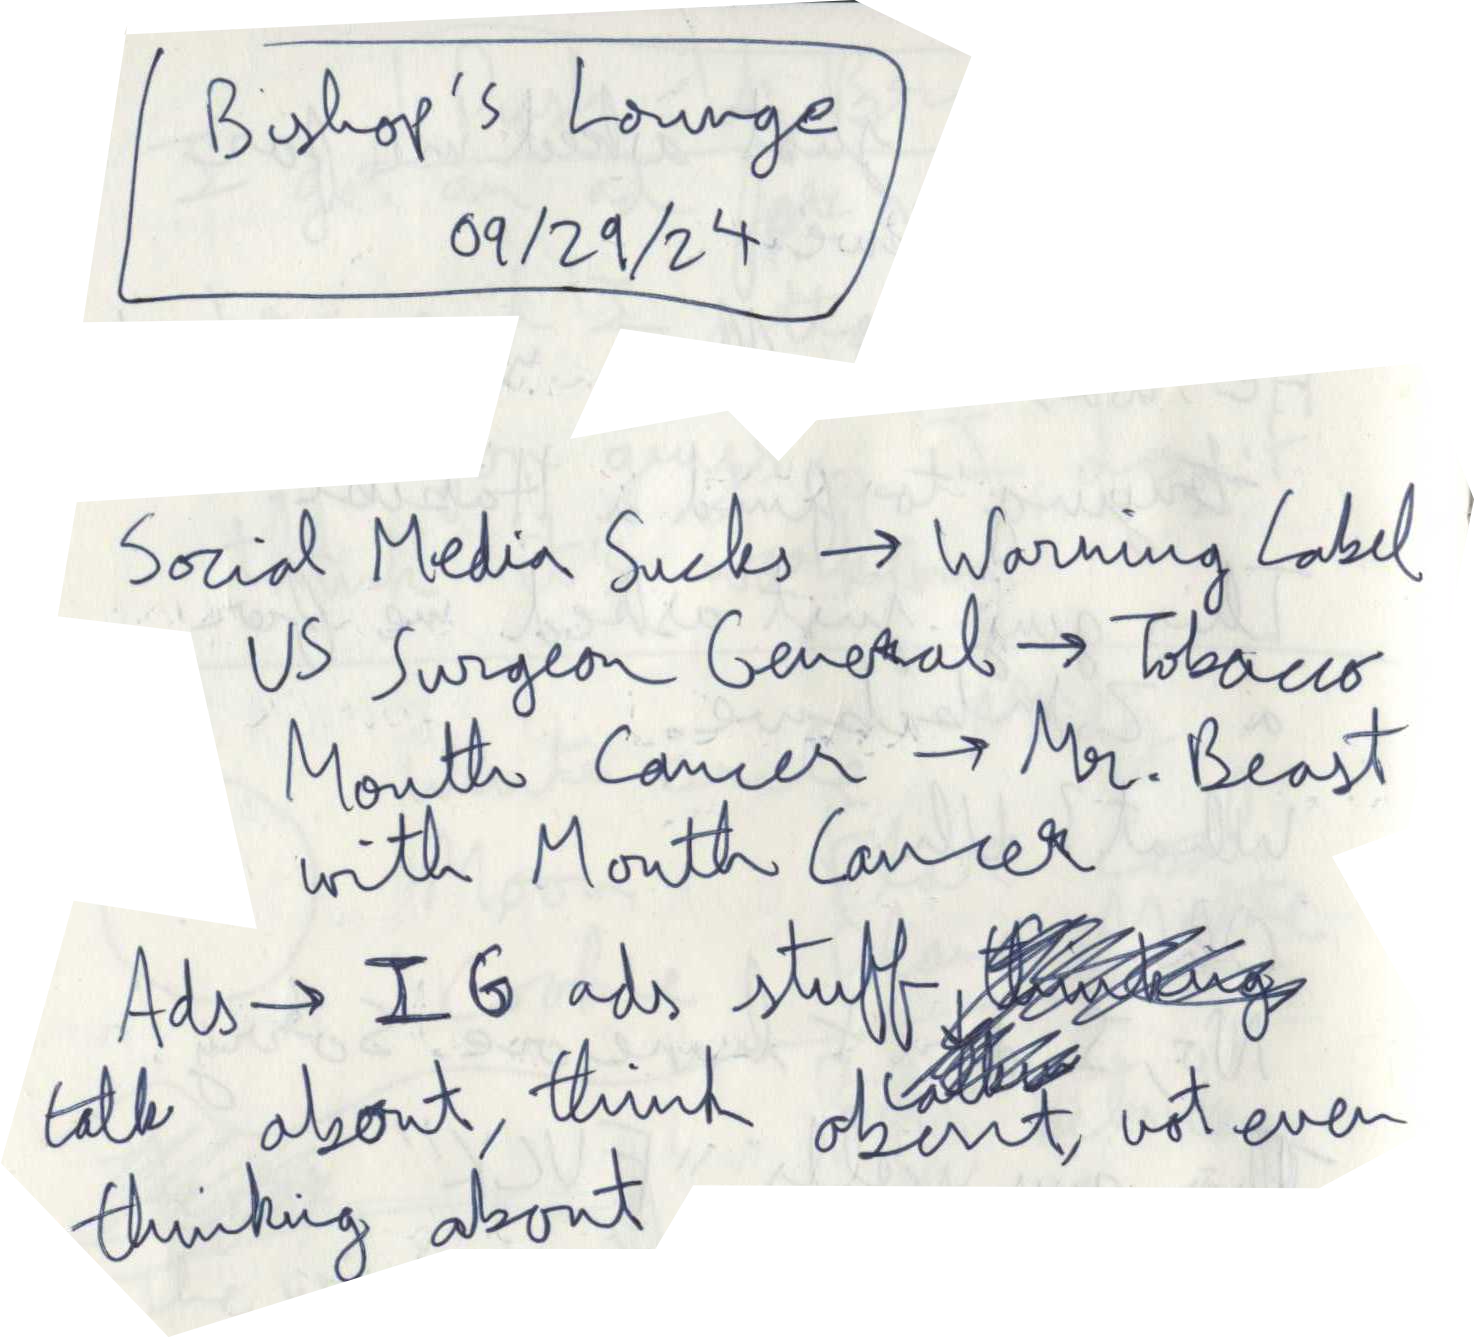 Bishop's Lounge
09/29/24
Social Media Sucks → Warning Label
US Surgeon General → Tobacco
Mouth Cancer → Mr. Beast
with Mouth Cancer
Ads → IG ads stuff, thinking
talk about, think about, not even
thinking about